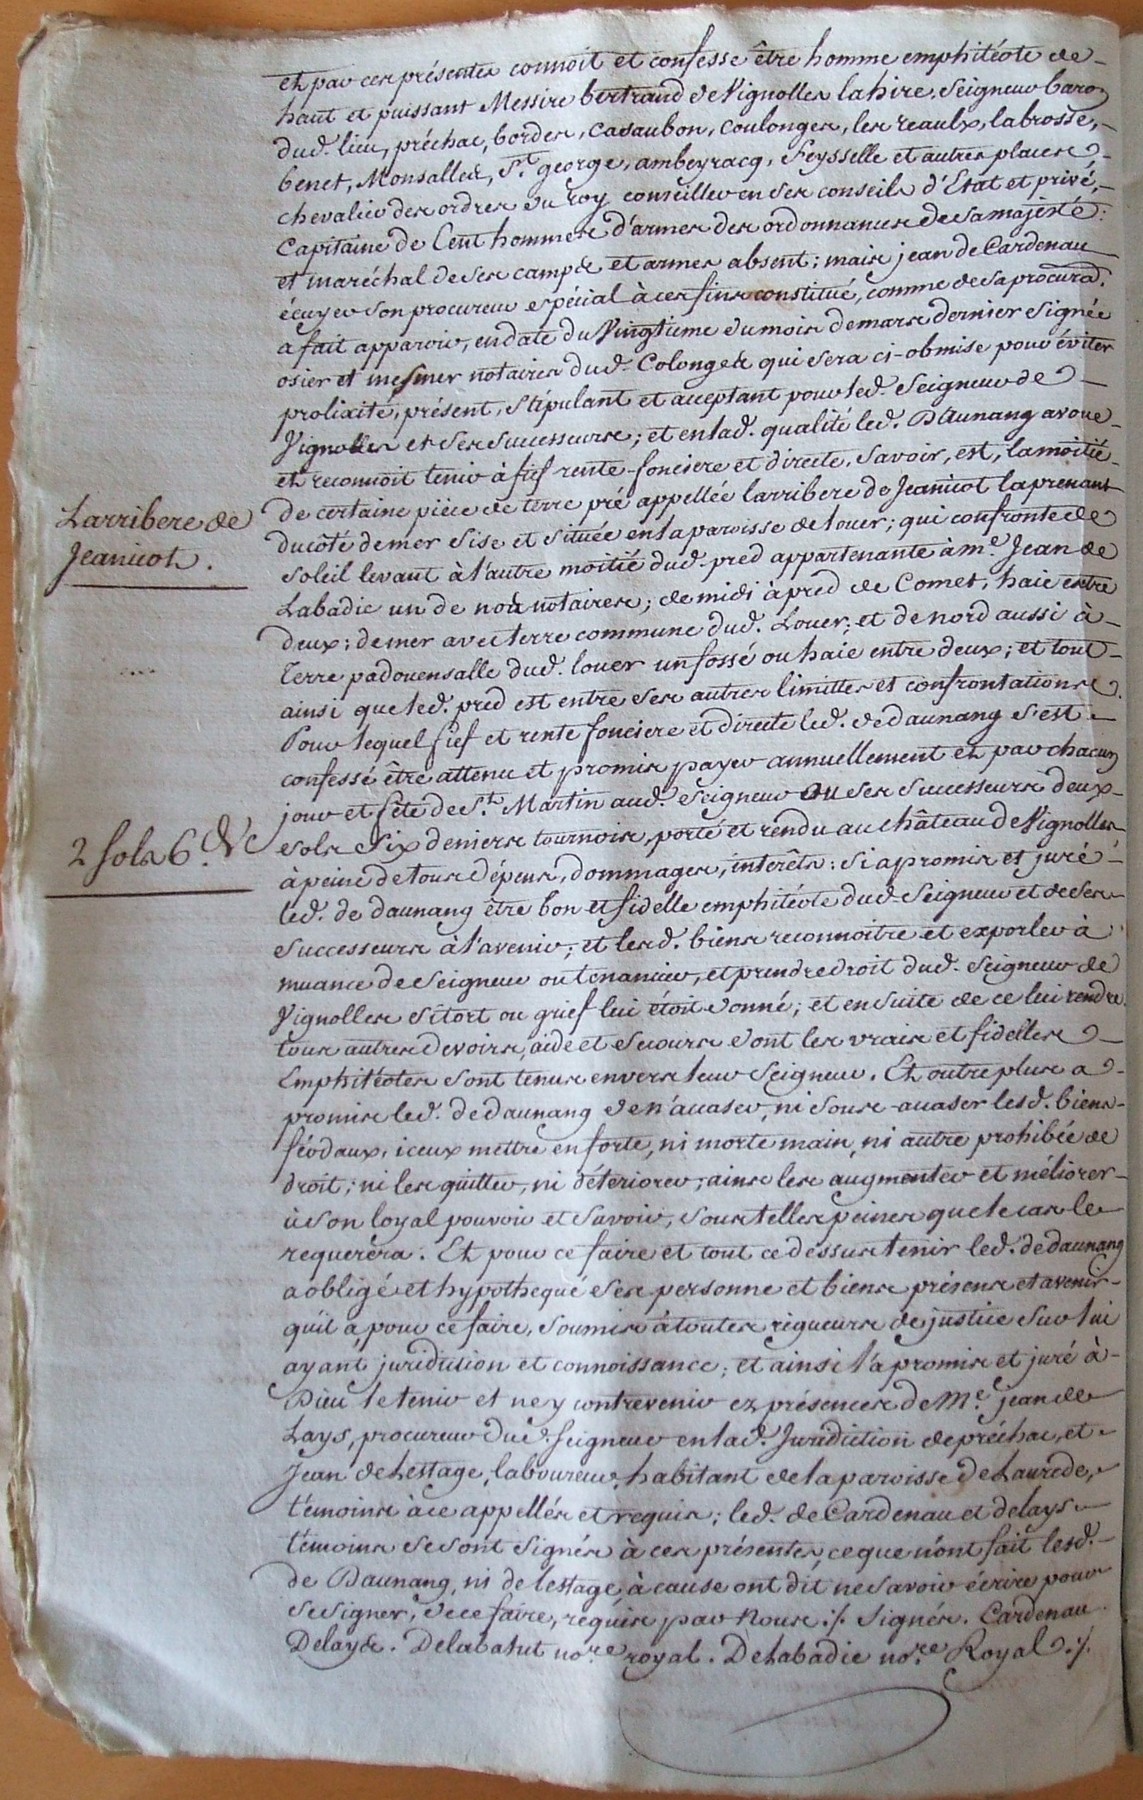 et par ces présentes connoit et confesse être homme emphitéote de
haut et puissant Messire bertrand de Vignolles lahire, Seigneur baron
dud. lieu, préchac, bordes, Casaubon, Coulonges, les reaulx, labrosse,
benet, Monsalles, St. george, ambeyracq, feysselle et autres places,
chevalier des ordres du roy conseiller en ses conseils d'Etat et privé,
Capitaine de Cent hommes d'armes des ordonnances de sa majesté:
et maréchal de ses camps et armes absent; mais jean de Cardenau
écuyer son procureur espécial à ces fins constitué, comme de sa procuraõn.
a fait apparoir, en date du Vingtieme du mois de mars dernier signée
osier et mesmer notaires dud. Colonges qui sera ci-obmise pour éviter
prolixité, présent, stipulant et acceptant pour led. Seigneur de
Vignolles et ses successeurs; et en lad. qualité led. Daunang avoue
et reconnoit tenir à fief rente fonciere et directe, savoir, est, la moitié
Larribere de
Jeanicot.
de certaine piéce de terre pré appellée larribere de Jeanicot la prenant
du côté de mer sise et située en la paroisse de louer; qui confronte de
soleil levant à l'autre moitié dud. pred appartenante à me. Jean de
Labadie un de nous notaires; de midi à pred de Comet, haie entre
deux; de mer avec terre commune dud. Louer; et de nord aussi à
Terre padouensalle dud. louer un fossé ou haie entre deux; et tout
ainsi que led. pred est entre ses autres limittes et confrontations.
Pour lequel fief et rente fonciere et directe led. de daunang s'est
confessé être attenu et promis payer annuellement et par chacun
jour et fête de St. Martin aud. Seigneur ou ses successeurs deux
2 sols 6 d.
sols six deniers tournois, porté et rendu au château de Vignolles
à peine de tous dépens, dommages, interêts: Si a promis et juré
led. de daunang être bon et fidelle emphitéote dud. Seigneur et de ses
successeurs à l'avenir; et lesd. biens reconnoitre et exporler à
muance de Seigneur ou tenancier, et prendre droit dud. Seigneur de
Vignolles si tort ou grief lui étoit donné; et en suite de ce lui rendre
tous autres devoirs, aide et secours dont les vrais et fidelles
Emphitéotes sont tenus envers leur Seigneur. Et outre plus a
promis led. de daunang de n'acaser, ni sous-acaser lesd. biens
féodaux, iceux mettre en forte, ni morte main, ni autre prohibée de
droit; ni les quitter, ni détériorer, ains les augmenter et méliorer
à son loyal pouvoir et savoir, sous telles peines que le cas le
requerera. Et pour ce faire et tout ce dessus tenir led. de daunang
a obligé et hypothequé ses personne et biens présens et avenir
qu'il a, pour ce faire, soumis à toutes rigueurs de justice sur lui
ayant juridiction et connoissance; et ainsi l'a promis et juré à
Dieu le tenir et n'ey contrevenir ez présences de Me. jean de
Lays, procureur dud. Seigneur en lad. Juridiction de préchac, et
Jean de Lestage, laboureur, habitant de la paroisse de Laurede,
témoins à ce appellés et requis; led. de Cardenau et delays
témoins se sont signés à ces présentes, ce que n'ont fait lesd.
de Daunang, ni de lestage à cause ont dit ne savoir écrire pour
se signer, de ce faire, requis par Nous ./. signés. Cardenau
Delays. Delabatut nore. royal. De Labadie nore. Royal ./.